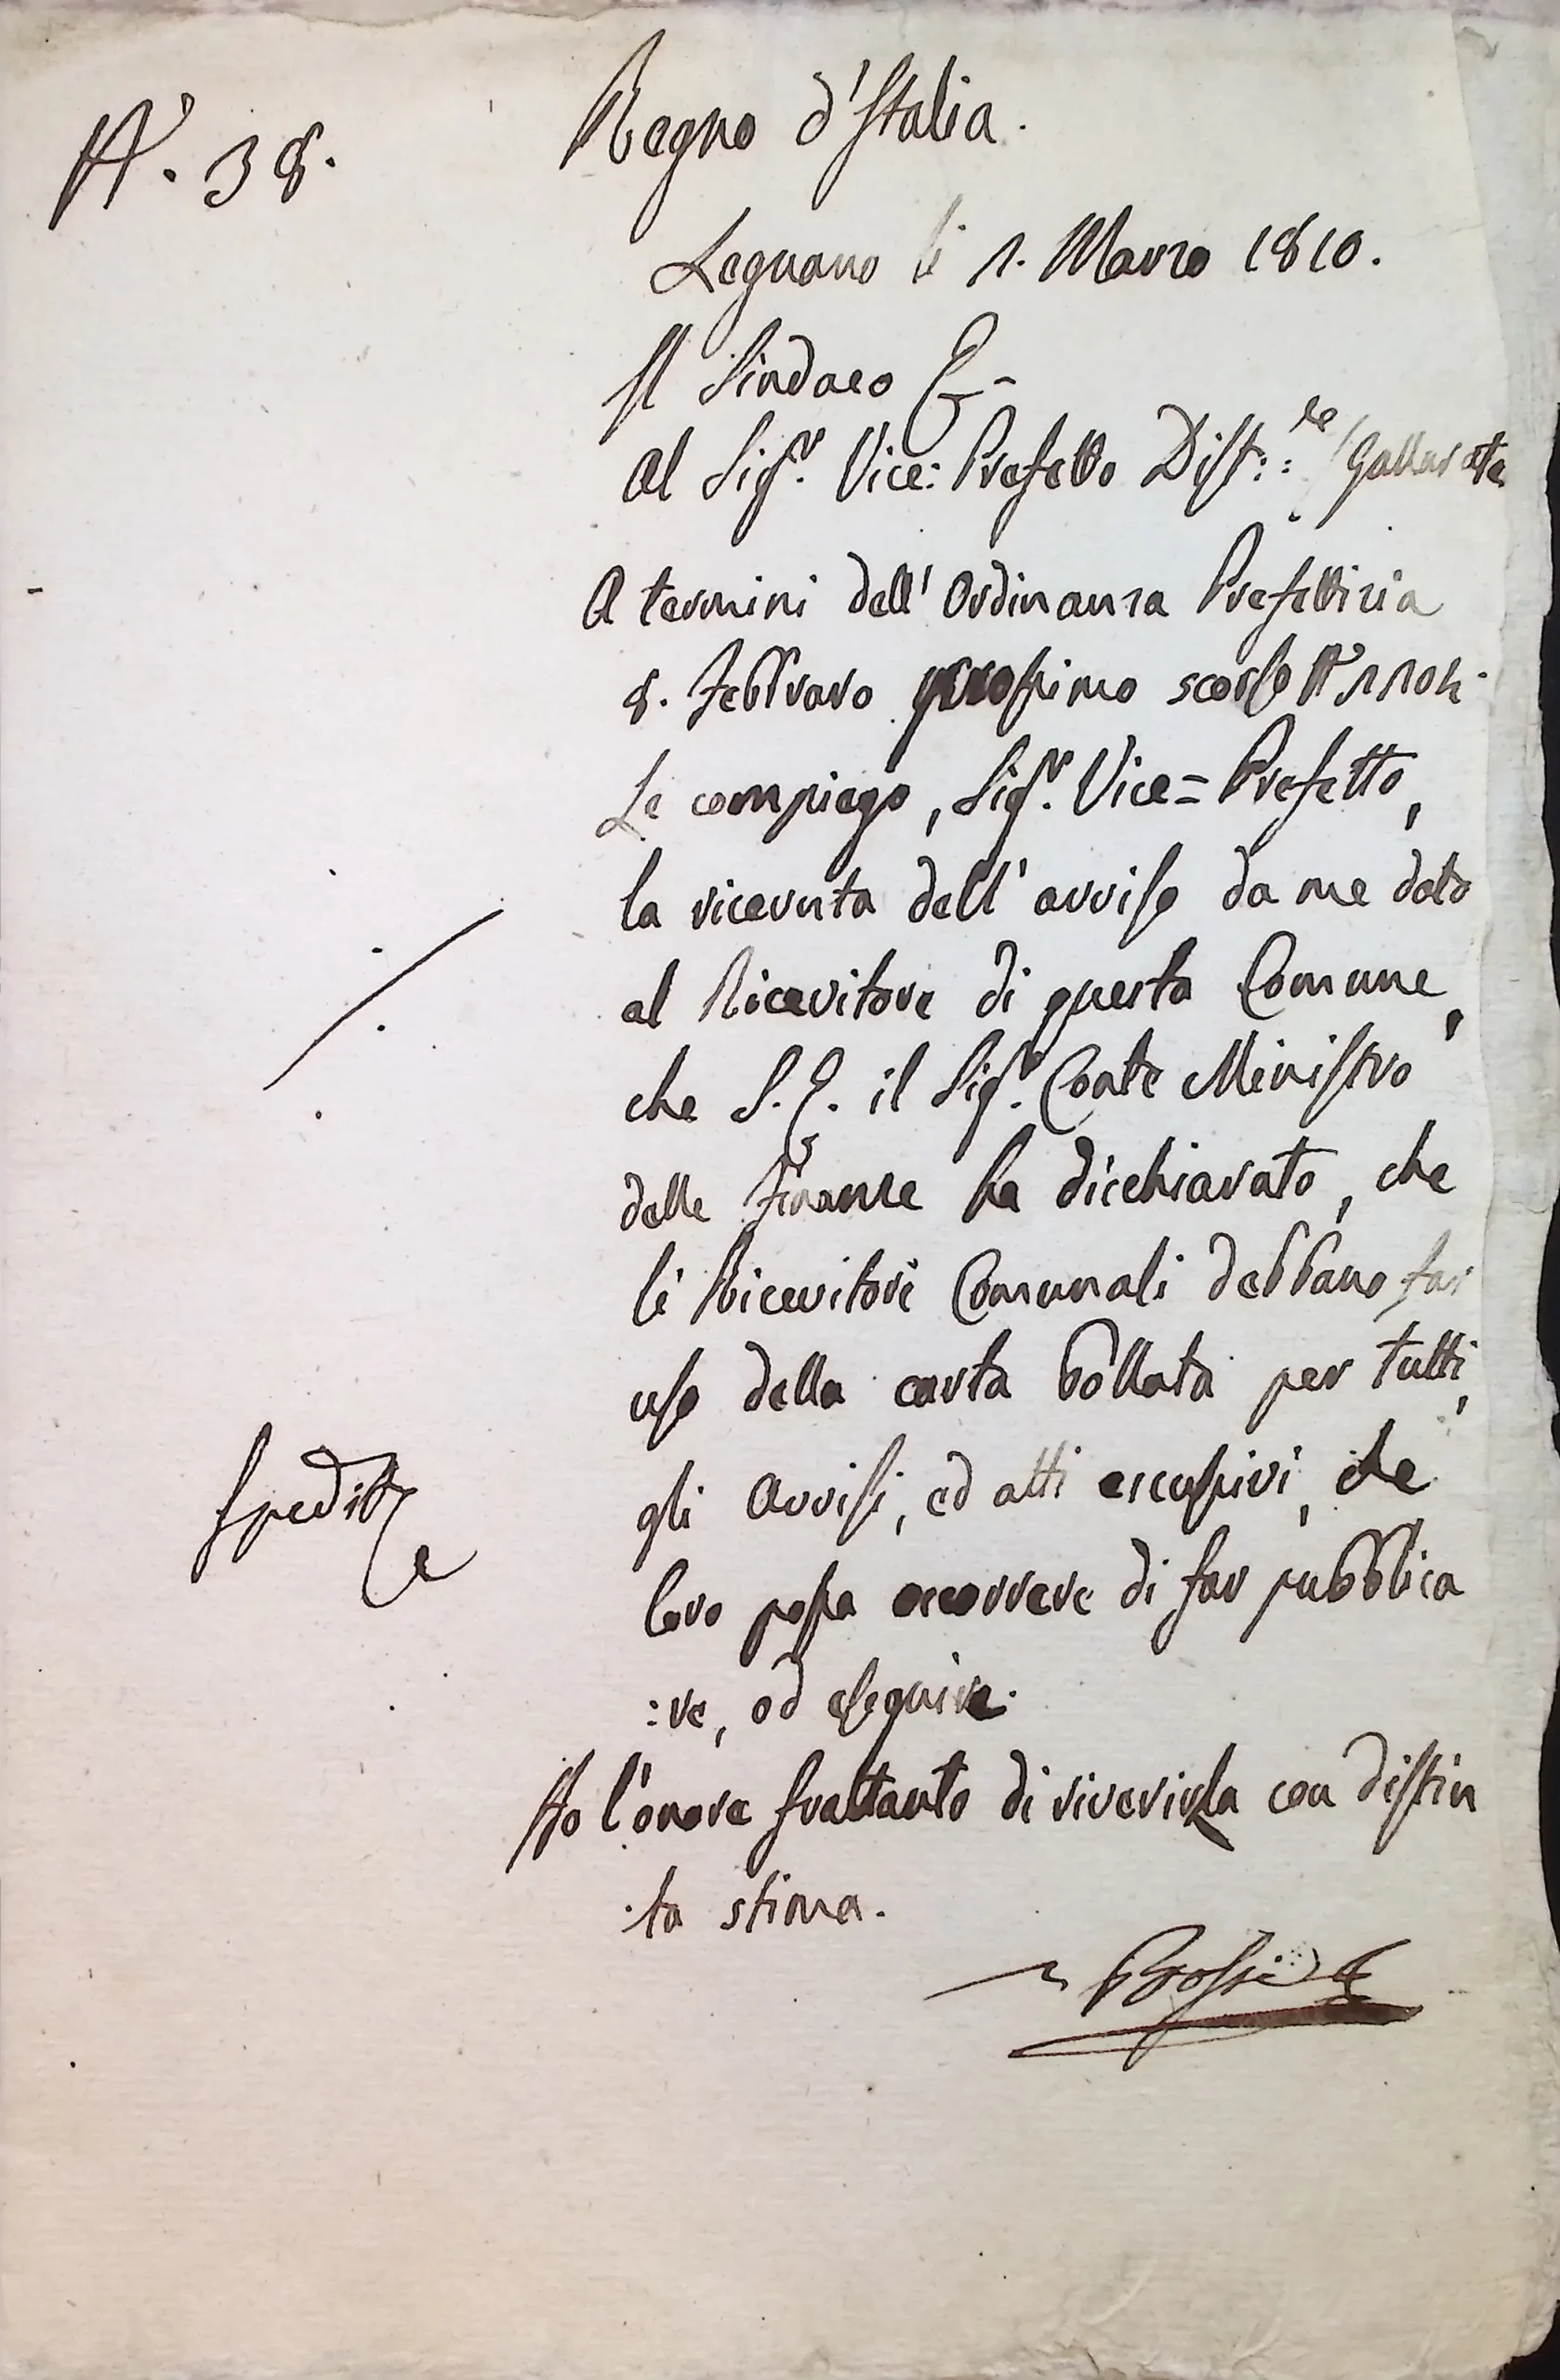 N.° 38.
Regno d'Italia.
Legnano li 1. Marzo 1810.
Il Sindaco
Al Sig.r Vice: Prefetto Dist::le Gallarate
A termini dell'Ordinanza Prefettizia
8. Febbraro prossimo scorso N.°
Le compiego, Sig.r Vice= Prefetto,
la ricevuta dell'avviso da me dato
al Ricevitore di questa Comune,
che S. E. il Sig.r Conte Ministro
delle Finanze ha dicchiarato, che
li Ricevitori Comunali debbano far
uso della carta bollata per tutti,
gli Avvisi, ed atti escussivi, che
loro possa occorrere di far pubblica
:re, od eseguire.
Spedita
Ho l'onore frattanto di riverirla con distin
ta stima.